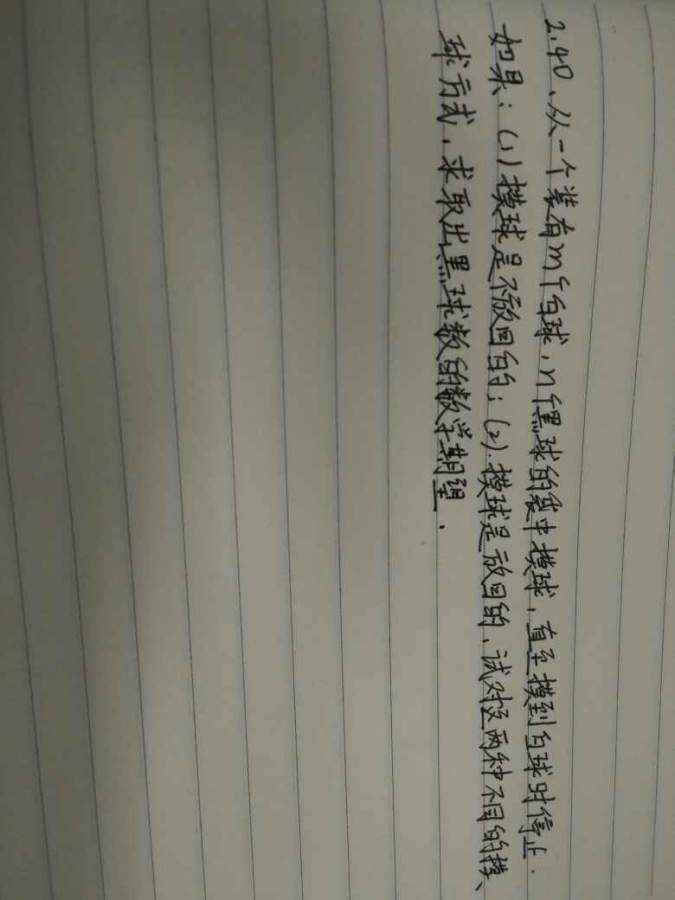 2.40、从一个装有m个白球,n个黑球的袋中摸球,直至摸到白球时停止.
如果:(1)摸球是不放回的;(2).摸球是放回的,试对这两种不同的摸
球方式,求取出黑球数的数学期望.